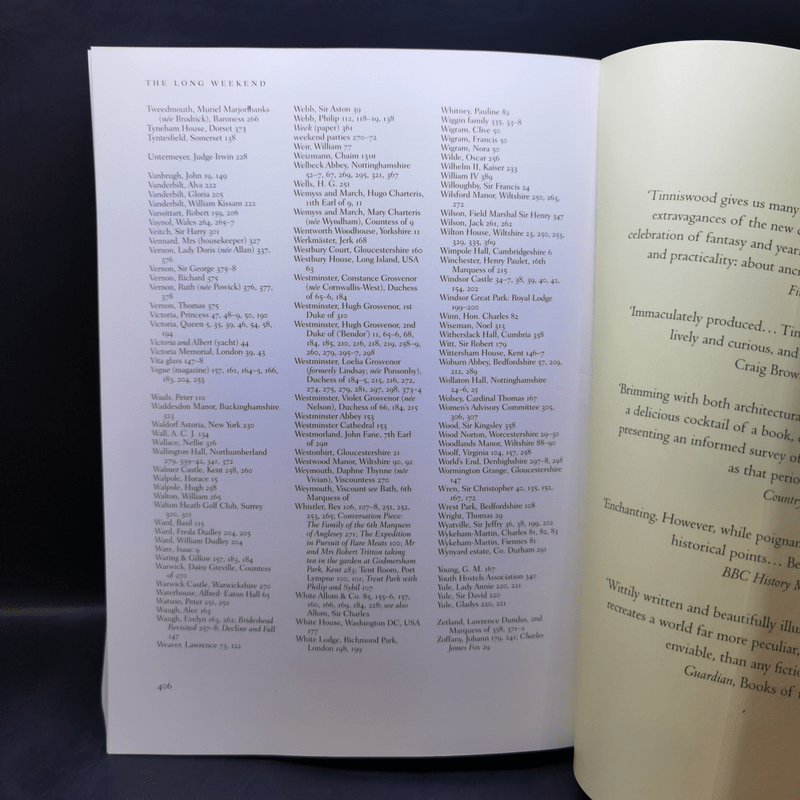 THE LONG WEEKEND
Tweedmouth, Muriel Marjoribanks
(née Brodrick), Baroness 266
Tyneham House, Dorset 373
Tyntesfield, Somerset 138
Untermeyer, Judge Irwin 228
Vanbrugh, John 19, 149
Vanderbilt, Alva 222
Vanderbilt, Gloria 205
Vanderbilt, William Kissam 222
Vansittart, Robert 159, 206
Vaynol, Wales 264, 265–7
Veitch, Sir Harry 301
Vennard, Mrs (housekeeper) 327
Vernon, Lady Doris (née Allan) 337,
376
Vernon, Sir George 375–8
Vernon, Richard 375
Vernon, Ruth (née Powick) 376, 377,
378
Vernon, Thomas 375
Victoria, Princess 47, 48–9, 50, 190
Victoria, Queen 5, 35, 39, 46, 54, 58,
194
Victoria and Albert (yacht) 44
Victoria Memorial, London 39, 43
Vita glass 147–8
Vogue (magazine) 157, 161, 164–5, 166,
183, 204, 253
Waals, Peter 110
Waddesdon Manor, Buckinghamshire
323
Waldorf Astoria, New York 230
Wall, A. C. J. 134
Wallace, Nellie 316
Wallington Hall, Northumberland
279, 339–42, 341, 372
Walmer Castle, Kent 258, 260
Walpole, Horace 15
Walpole, Hugh 258
Walton, William 265
Walton Heath Golf Club, Surrey
300, 301
Ward, Basil 115
Ward, Freda Dudley 204, 205
Ward, William Dudley 204
Ware, Isaac 9
Waring & Gillow 157, 183, 184
Warwick, Daisy Greville, Countess
of 270
Warwick Castle, Warwickshire 270
Waterhouse, Alfred: Eaton Hall 65
Watson, Peter 251, 252
Waugh, Alec 163
Waugh, Evelyn 163, 262; Brideshead
Revisited 257–8, Decline and Fall
147
Weaver, Lawrence 73, 122
406
Webb, Sir Aston 39
Webb, Philip 112, 118–19, 138
Week (paper) 361
weekend parties 270–72
Weir, William 77
Weizmann, Chaim 131n
Welbeck Abbey, Nottinghamshire
52–7, 67, 269, 295, 321, 367
Wells, H. G. 251
Wemyss and March, Hugo Charteris,
11th Earl of 9, 11
Wemyss and March, Mary Charteris
(née Wyndham), Countess of 9
Wentworth Woodhouse, Yorkshire 11
Werkmäster, Jerk 168
Westbury Court, Gloucestershire 160
Westbury House, Long Island, USA
63
Westminster, Constance Grosvenor
(née Cornwallis-West), Duchess
of 65–6, 184
Westminster, Hugh Grosvenor, 1st
Duke of 310
Westminster, Hugh Grosvenor, 2nd
Duke of ('Bendor') 11, 65–6, 68,
184, 185, 210, 216, 218, 219, 258–9,
260, 279, 295–7, 298
Westminster, Loelia Grosvenor
(formerly Lindsay; née Ponsonby),
Duchess of 184–5, 215, 216, 272,
274, 275, 279, 281, 297, 298, 373–4
Westminster, Violet Grosvenor (née
Nelson), Duchess of 66, 184, 215
Westminster Abbey 153
Westminster Cathedral 153
Westmorland, John Fane, 7th Earl
of 291
Westonbirt, Gloucestershire 21
Westwood Manor, Wiltshire 90, 92
Weymouth, Daphne Thynne (née
Vivian), Viscountess 270
Weymouth, Viscount see Bath, 6th
Marquess of
Whistler, Rex 106, 107–8, 251, 252,
253, 265; Conversation Piece:
The Family of the 6th Marquess
of Anglesey 271; The Expedition
in Pursuit of Rare Meats 100; Mr
and Mrs Robert Tritton taking
tea in the garden at Godmersham
Park, Kent 283; Tent Room, Port
Lympne 100, 101; Trent Park with
Philip and Sybil 107
White Allom & Co. 85, 155–6, 157,
160, 166, 169, 184, 228; see also
Allom, Sir Charles
White House, Washington DC, USA
177
White Lodge, Richmond Park,
London 198, 199
Whitney, Pauline 82
Wiggin family 335, 33–8
Wigram, Clive 50
Wigram, Francis 50
Wigram, Nora 50
Wilde, Oscar 256
Wilhelm II, Kaiser 233
William IV 389
Willoughby, Sir Francis 24
Wilsford Manor, Wiltshire 250, 263,
272
Wilson, Field Marshal Sir Henry 347
Wilson, Jack 261, 262
Wilton House, Wiltshire 23, 250, 253,
329, 335, 369
Wimpole Hall, Cambridgeshire 6
Winchester, Henry Paulet, 16th
Marquess of 215
Windsor Castle 34–7, 38, 39, 40, 42,
154, 202
Windsor Great Park: Royal Lodge
199–200
Winn, Hon. Charles 82
Wiseman, Noel 313
Witherslack Hall, Cumbria 358
Witt, Sir Robert 179
Wittersham House, Kent 146–7
Woburn Abbey, Bedfordshire 57, 209,
212, 289
Wollaton Hall, Nottinghamshire
24–6, 25
Wolsey, Cardinal Thomas 167
Women's Advisory Committee 305,
306, 307
Wood, Sir Kingsley 358
Wood Norton, Worcestershire 29–30
Woodlands Manor, Wiltshire 88–90
Woolf, Virginia 104, 157, 258
World's End, Denbighshire 297–8, 298
Wormington Grange, Gloucestershire
147
Wren, Sir Christopher 40, 135, 152,
167, 172
Wrest Park, Bedfordshire 108
Wright, Thomas 29
Wyatville, Sir Jeffry 36, 38, 199, 202
Wykeham-Martin, Charles 81, 82, 83
Wykeham-Martin, Fiennes 81
Wynyard estate, Co. Durham 291
Young, G. M. 167
Youth Hostels Association 340
Yule, Lady Annie 220, 221
Yule, Sir David 220
Yule, Gladys 220, 221
Zetland, Lawrence Dundas, 2nd
Marquess of 358, 371–2
Zoffany, Johann 179, 241; Charles
James Fox 29
'Tinniswood gives us many
extravagances of the new
celebration of fantasy and
and practicality: about
'Immaculately produced… 
lively and curious, and
Craig
'Brimming with both
a delicious cocktail of a book,
presenting an informed survey of
as that
'Enchanting. However, while
historical points…
BBC History
'Wittily written and beautifully
recreates a world far more peculiar,
enviable, than any
Guardian, Books of